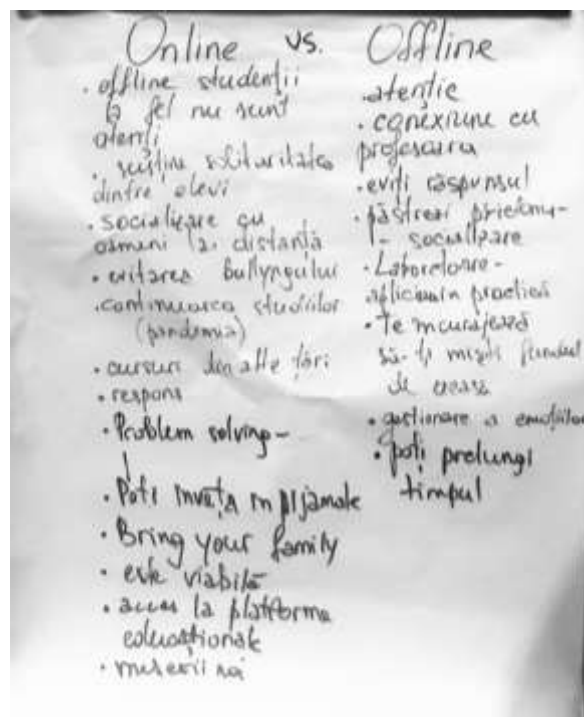 Online vs. Offline
· offline studenții
la fel nu sunt
atenți
· susține
dintre elevi
· socializare cu
oameni la distanță
· evitarea bullyngului
· continuarea studiilor
(pandemia)
· cursuri din alte țări
· respons
· Problem solving -
· Poți învăța în pijamale
· Bring your family
· este viabilă
· acces la platforme
educaționale
· atenție
· conexiune cu
profesorul
· eviți răspunsul
· păstrezi
- socializare
· Laboratoare -
practică
· Te încurajează
să-ți miști fundul
de acasă
· gestionare a emoțiilor
· poți prelungi
timpul